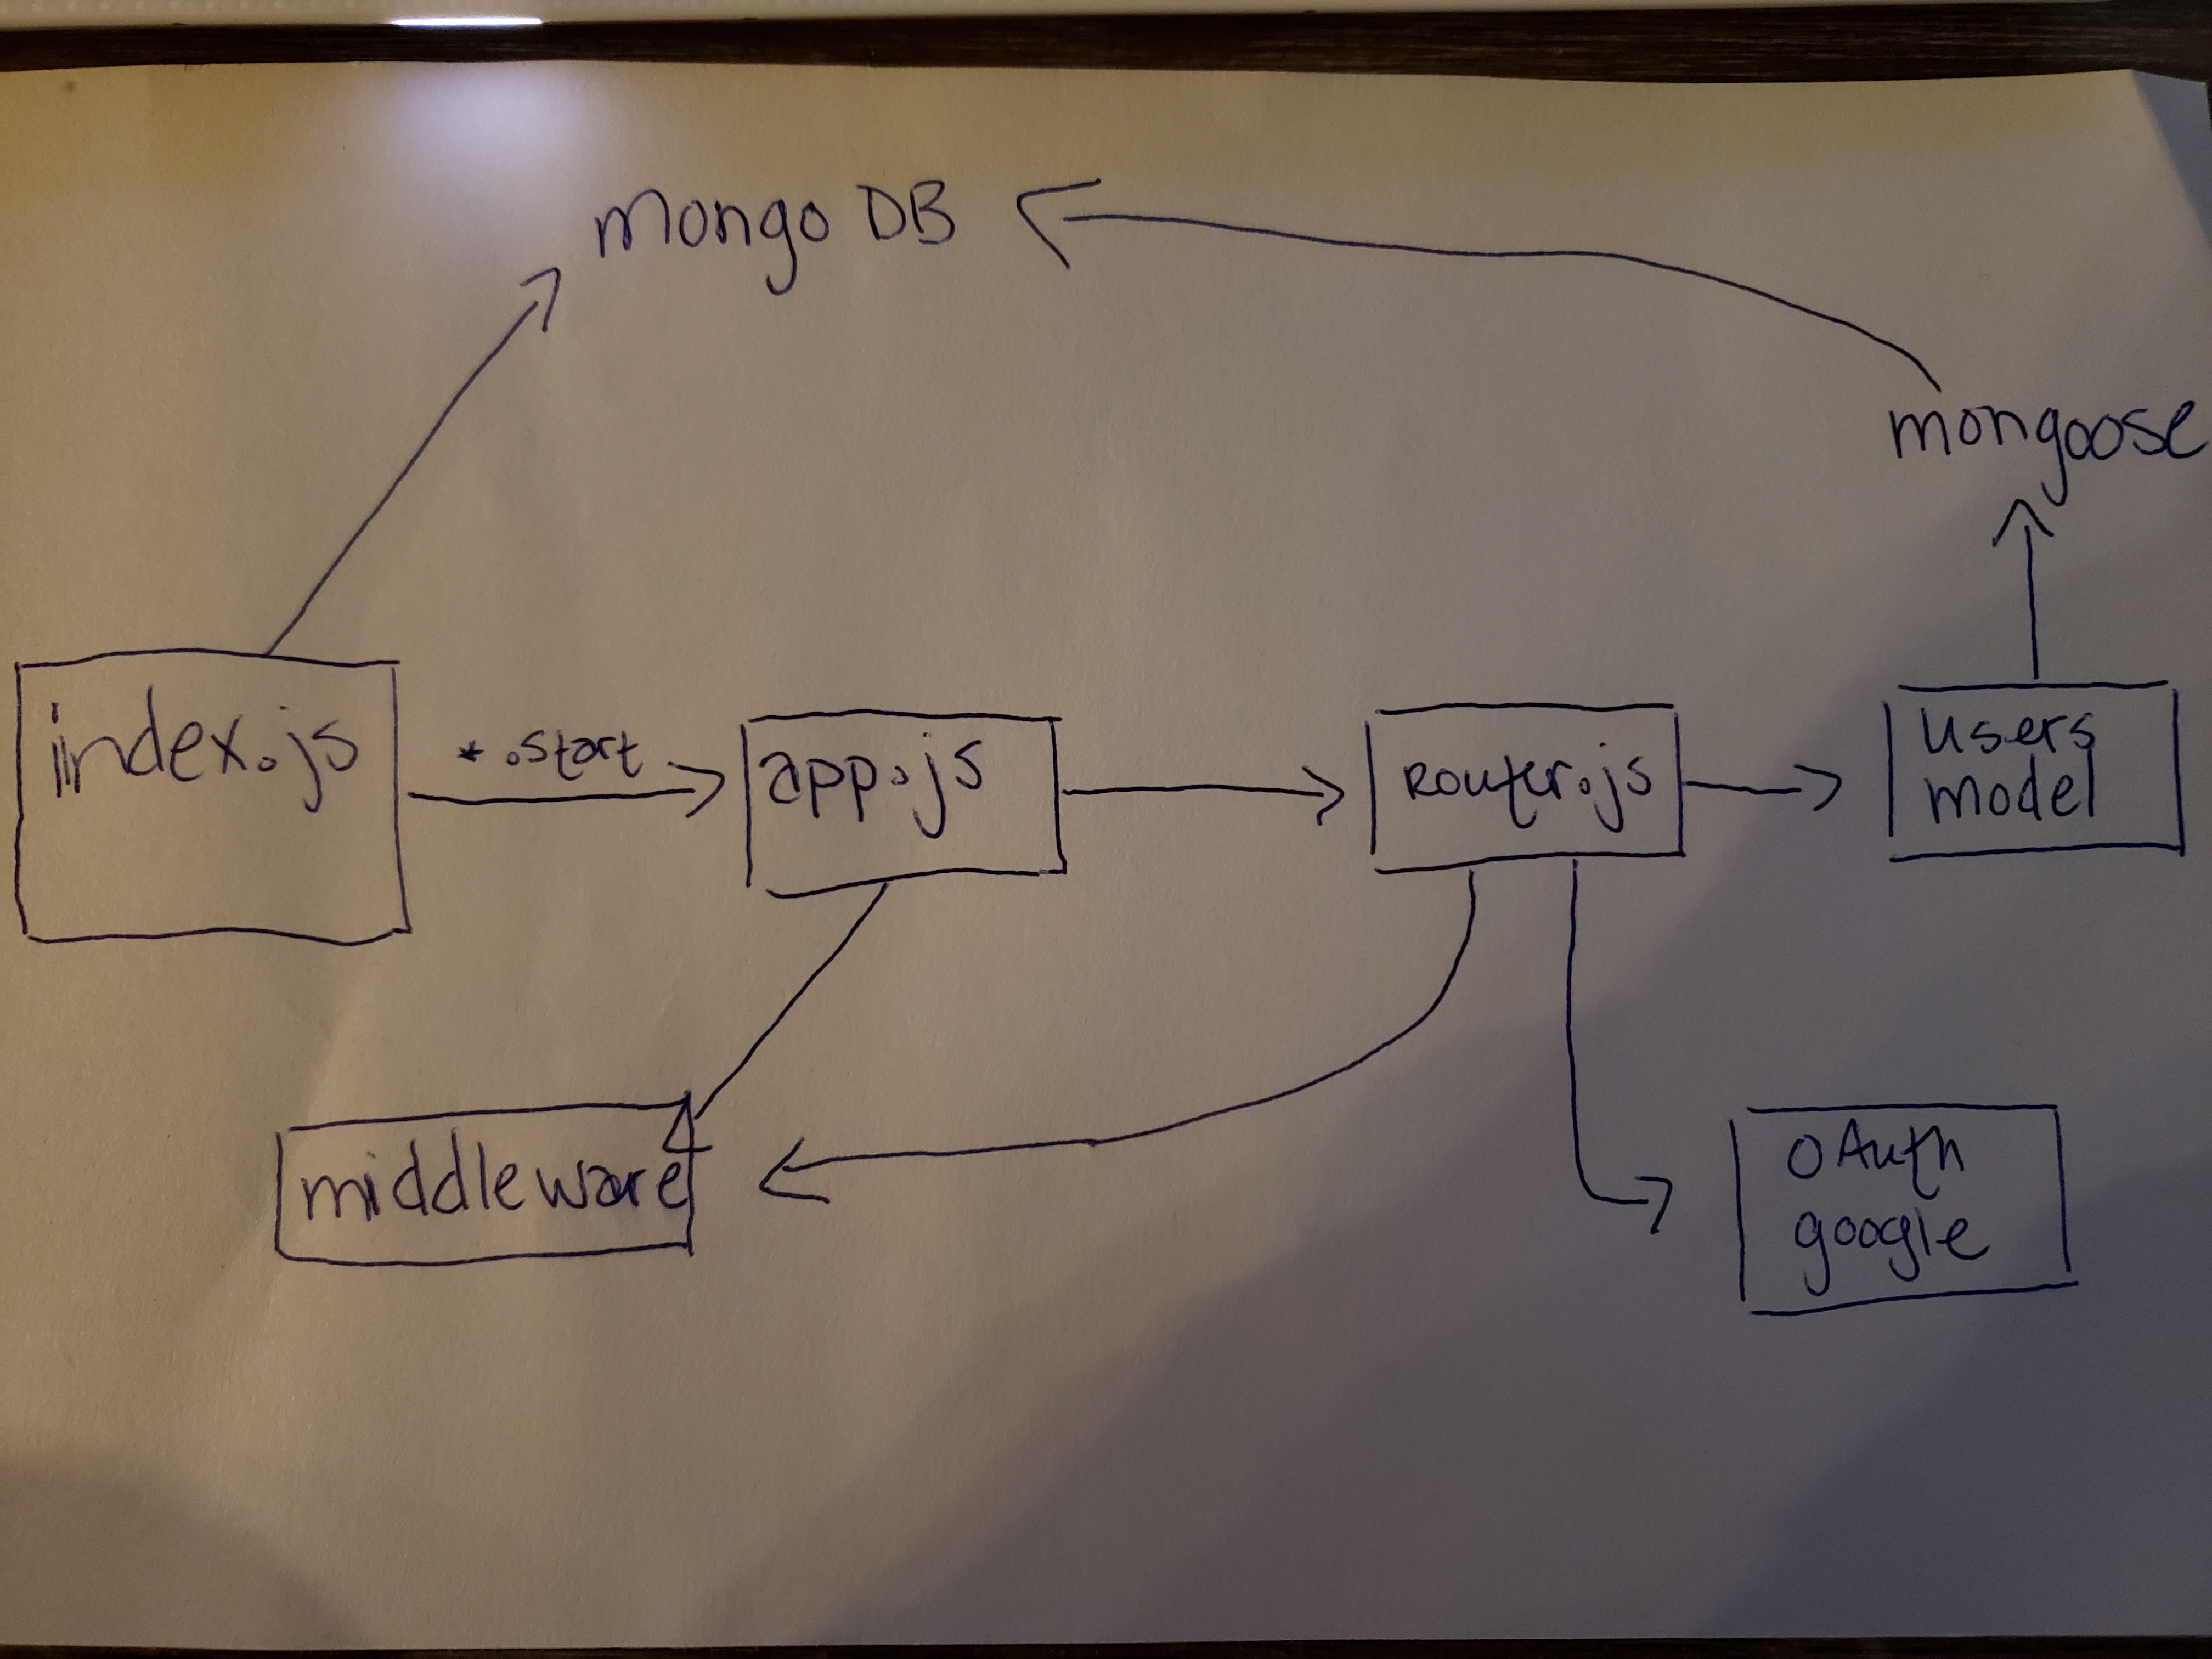 mongo DB
mongoose
index.js
*.start
app.js
Router.js
users
model
middleware
OAuth
google